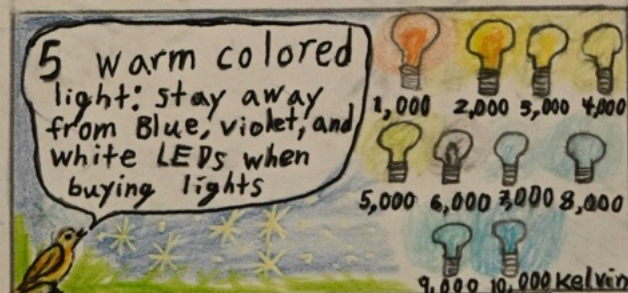 5 warm colored
light: stay away
from Blue, violet, and
white LEDs when
buying lights
1,000 2,000 3,000 4,000
5,000 6,000 7,000 8,000
9,000 10,000 Kelvin